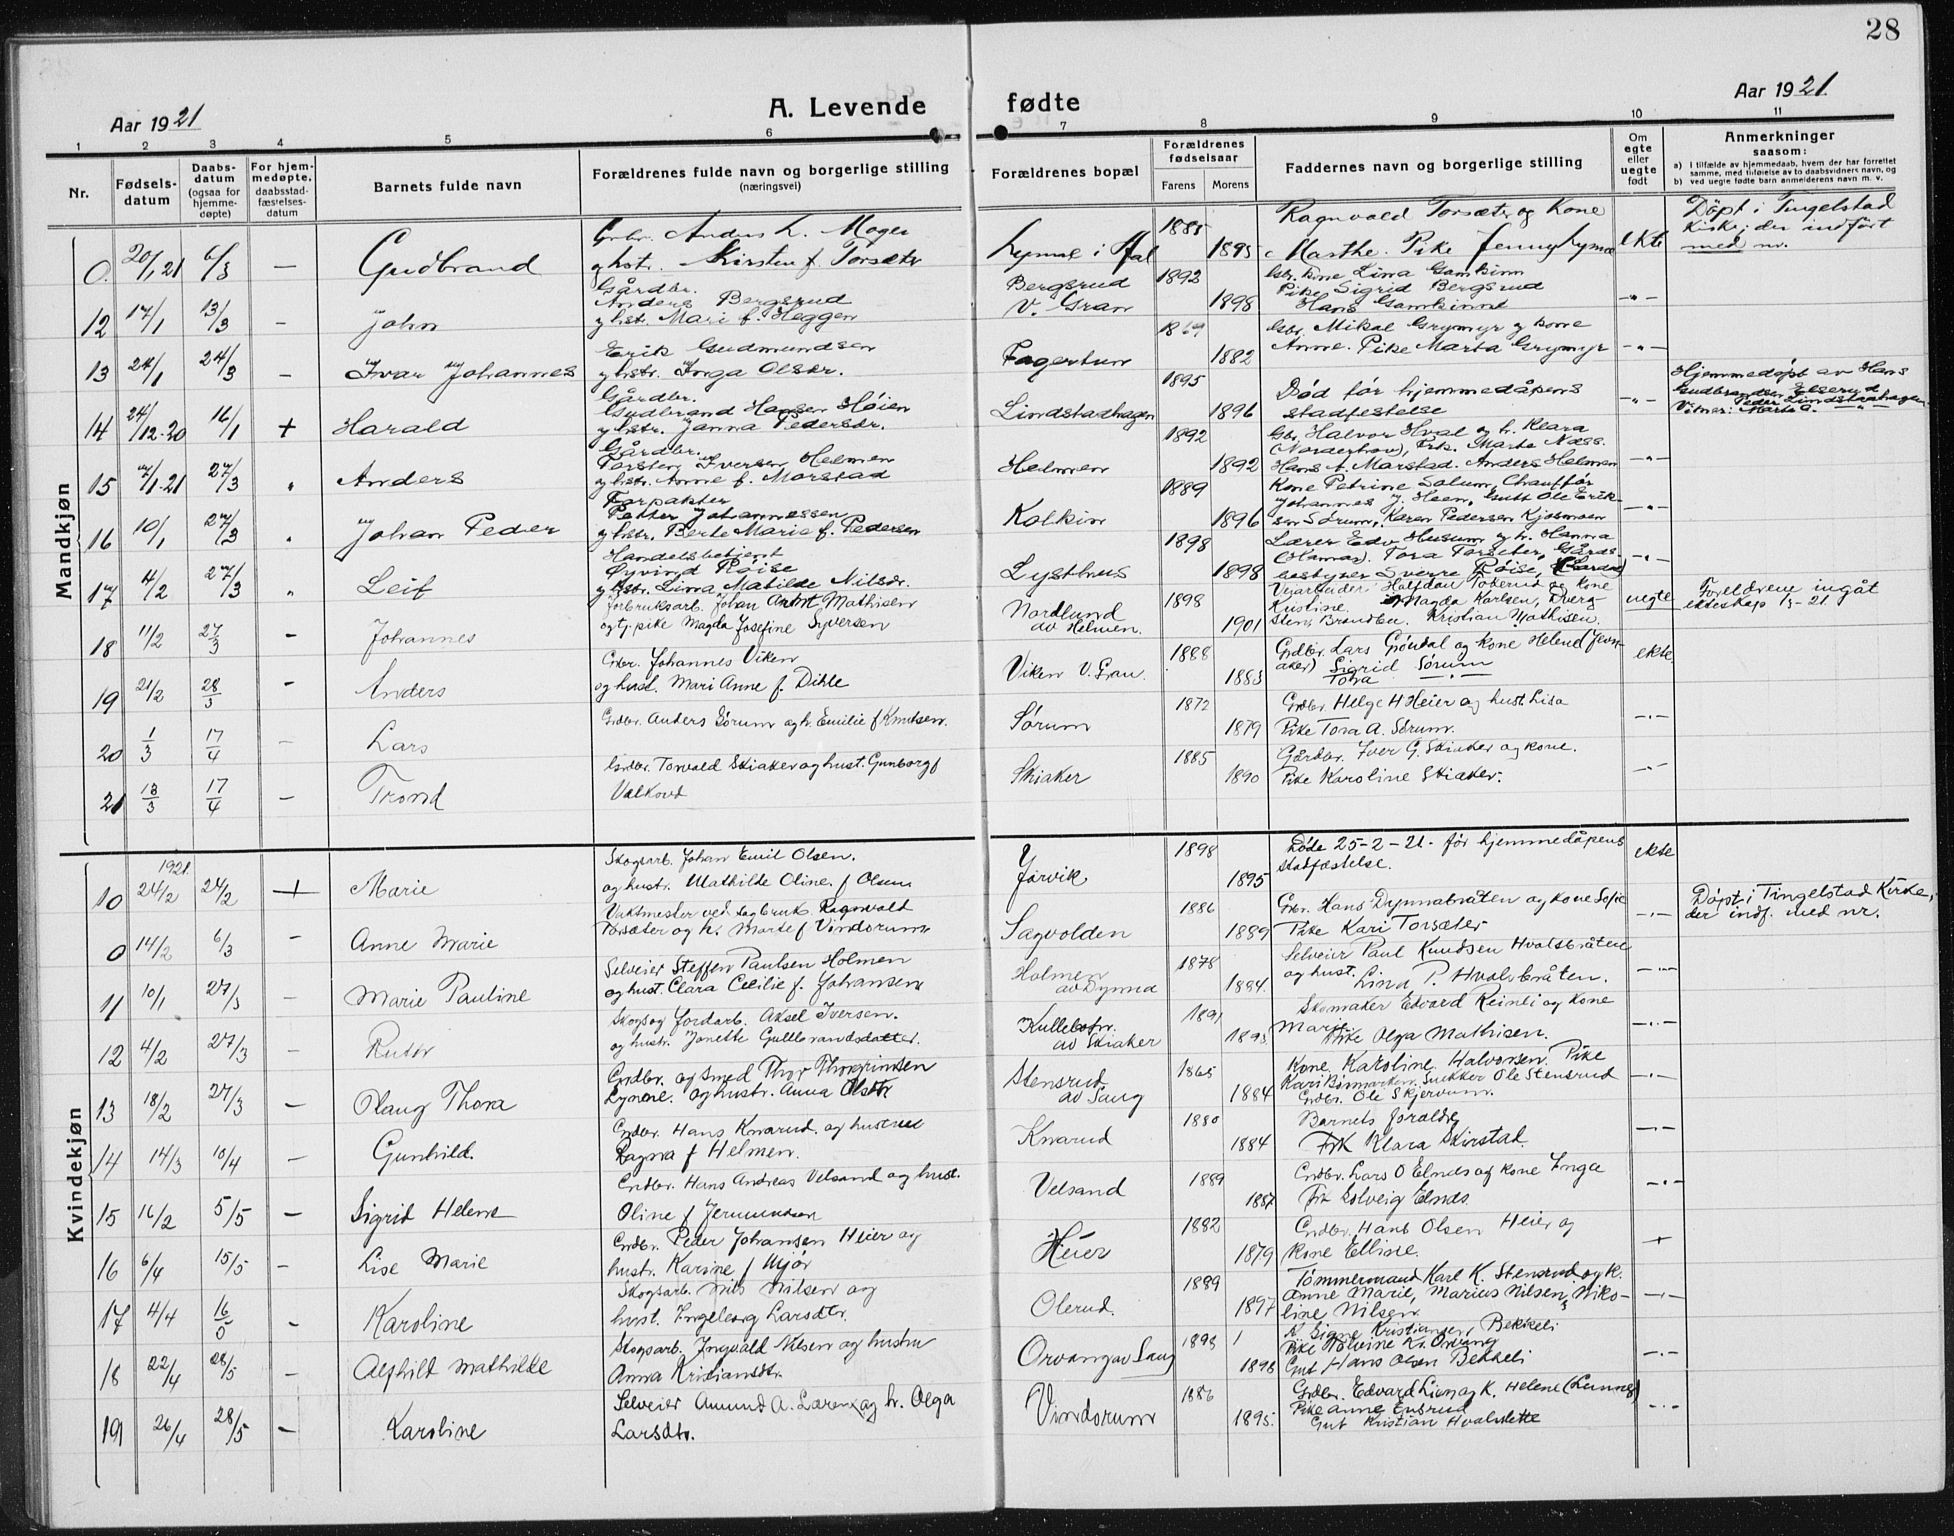 28
Aar 1921
A. Levende fødte
Aar 1921
1 2 3 4 5 6 7 8 9 10 11
Nr.
Fødsels-
datum
Daabs-
datum
(ogsaa for
hjemme-
døpte)
For hjem-
medøpte,
daabsstad-
fæstelses-
datum
Barnets fulde navn
Forældrenes fulde navn og borgerlige stilling
(næringsvei)
Forældrenes bopæl
Forældrenes
fødselsaar
Farens Morens
Faddernes navn og borgerlige stilling
Om
egte
eller
uegte
født
Anmerkninger
saasom:
a) I tilfælde av hjemmedaab, hvem der har forrettet
samme, med tilføielse av to daabsvidners navn, og
b) ved uegte fødte barn anmelderens navn m. v.
Mandkjøn
0. 20/1 21 6/3 — Gudbrand
Anders L. Moger
g hstr. Kirsten f. Torsæter
1885 1893
Ragnvald Torsæter og Kone
Marthe. Pike Jenny Lynne
ekte
Døpt i Tingelstad
Kirke, der indført
med nr.
12 17/1 13/3 — John
Gårdbr.
Anders Bergsrud
g hst. Mari f. Heggen
Bergsrud
V. Gran
1892 1898
Gbr. kone Lina Gamkinn
Pike Sigrid Bergsrud
Hans Gamkinne
-"-
13 24/1 24/3 — Ivar Johannes
Erik Gudmundsen
g hstr. Inga Olsdr.
Fagertun
1869 1882
Gbr. Mikal Grymyr g kone
Anne. Pike Marta Grymyr
-"-
14 24/12-20 16/1 + Harald
Gårdbr.
Gudbrand Hansen Høien
g hstr. Janna Pedersdr.
Lindstadhagen
1895 1896
Død før hjemmedåpens
stadfestelse
-"-
Hjemmedøpt av Hans
Gudbrandsen Elserud
Vitner: Peder Lindstadhagen
Marte G. —"—
15 7/1-21 27/3 " Anders
Gårdbr.
Torsten Iversen Helmen
g hstr. Anne f. Morstad
Helmen
1892 1892
Gbr. Halvor Hval og h. Klara
(Norderhov), Frk. Marta Næss.
Hans A. Marstad. Anders Helmen
-"-
16 10/1 27/3 " Johan Peder
Forpakter
Petter Johannessen
g hstr. Berte Marie f. Pedersen
Kolkin
1889 1896
Kone Petrine Solum, Chauffør
Johannes J. Heen, Gutt Ole Erik-
sen Sørum, Karen Pedersen Kjosmoen
-"-
17 4/2 27/3 " Leif
Handelsbetjent
Øyvind Røise
g hstr. Lina Matilde Nilsdr.
Lysthus
1898 1898
Lærer Edv Husum og h. Hanna
(Hamar). Tora Torseter, Gårds-
bestyrer Sverre Røise,
-"-
18 11/2 27/3 — Johannes
Jorbruksarb. Johan Anton Mathisen
og tj. pike Magda Josefine Syversen
Nordlund
av Helmen.
1898 1901
Veiarbeider Halfdan Tokerud og kone
Kristine. Magda Karlsen, Dverg-
sten, Brandbu. Kristian Mathisen.
uegte
Foreldrene ingåt
ekteskap 1/5-21
19 21/2 28/3 — Anders
Grdbr. Johannes Viken
og hust. Mari Anne f. Dihle
Viken V. Gran.
1888 1883
Grdbr. Lars Grøndal og kone Helene (Jevn-
aker) Sigrid Sørum
Tora —"—
ekte.
20 1/3 17/4 — Lars
Grdbr. Anders Sørum og h. Emilie f Knutsen.
Sørum
1872 1879
Grdbr. Helge H Heier og hust Lisa
Pike Tora A. Sørum.
-"-
21 13/3 17/4 — Trond
Grdbr. Torvald Skiaker og hust. Gunborg f
Valkord
Skiaker
1885 1890
Gårdbr. Iver G. Skiaker og kone.
Pike Karoline Skiaker.
-"-
Kvindekjøn
1921
10 24/2 24/2 + Marie
Skogsarb. Johan Emil Olsen.
og hustr. Mathilde Oline f Olsen
Jorvik
1898 1895
Døde 25-2-21. før hjemmedåpens
stadfæstelse.
ekte
0 14/2 6/3 — Anne Marie
Vaktmester ved sagbruk Ragnvald
Torsæter og h. Marte f Vindorum
Sagvolden
1886 1889
Grbr. Hans Dynnabråten og kone Sofie
Pike Kari Torsæter
-"-
Døpt i Tingelstad Kirke,
der indf. med nr.
11 10/1 27/3 — Marie Pauline
Selveier Steffen Paulsen Holmen
og hust. Clara Cecilie f. Johansen
Holmen
av Dynna
1878 1884.
Selveier Paul Knudsen Hvalsbråten
og hust. Lina P. Hvalsbråten.
-"-
12 4/2 27/3 — Ruth
Skogs og jordarb. Aksel Iversen.
og hustr. Jonette Gulbrandsdatter.
av Skiaker
1891 1893
Skomaker Edvard Reinli og kone
Marie. Pike Olga Mathisen.
-"-
13 18/2 27/3 — Olaug Thora
Grdbr. og smed Thor Thorsinsen
Lynne. og hustr. Anna Olsdtr
Stensrud
av Sang
1865 1884
Kone Karoline Halvorsen. Pike
Kari Bjørnarken. Snekker Ole Stensrud
Grdbr. Ole Skjervum.
-"-
14 14/3 10/4 — Gunhild.
Grdbr. Hans Knarud. og hustru
Ragna f Helmen.
Knarud
1880 1884
Barnets foraldre
Frk Klara Skirstad
-"-
15 16/2 5/5 — Sigrid Helene
Grdbr. Hans Andreas Velsand og hust.
Oline f Jermundsen
Velsand
1889 1887
Grdbr. Lars O Elnes og kone Inga
Frk Solveig Elnes.
-"-
16 6/4 15/5 — Lise Marie
Grdbr. Peder Johansen Heier og
hustr. Karine f Mjør
Heier
1882 1879
Grdbr. Hans Olsen Heier og
kone Elline.
-"-
17 4/4 16/5 — Karoline
Skogsarb. Nils Nilsen og
hust. Ingeborg Larsdtr.
Olerud.
1889 1897
Tømmermand Karl K. Stensrud og k.
Anne Marie, Marius Nilsen, Niko-
line Nilsen.
-"-
18 22/4 28/5 — Alfhild Mathilde
Skogsarb. Ingvald Nilsen og hustru
Anna Kristiansdtr.
Orvang av Sang
1898 1898
K Signe Kristiansen, Bekkeli
Pike Tolvine Kr. Orvang
Gut Hans Olsen Bekkeli
-"-
19 26/4 28/5 — Karoline
Selveier Amund A. Læren og h. Olga
Larsdtr.
Vindorum
1886 1895.
Grdbr. Edvard Lien og K. Helene (Lunner)
Pike Anne Ensrud
Gut Kristian Hvalslette
-"-